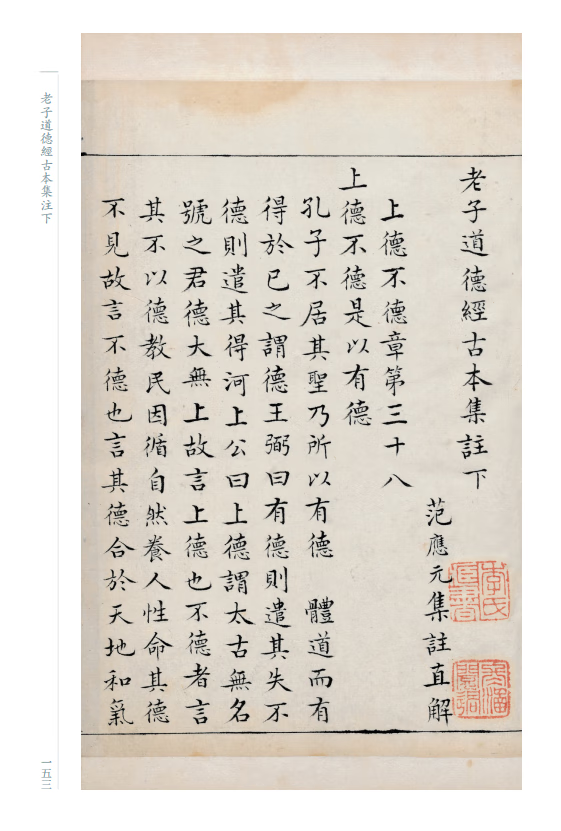 老子道德經古本集註下
范應元集註直解
上德不德章第三十八
上德不德是以有德
孔子不居其聖乃所以有德 體道而有
得於己之謂德王弼曰有德則遺其失不
德則遺其得河上公曰上德謂太古無名
號之君德大無上故言上德也不德者言
其不以德教民因循自然養人性命其德
不見故言不德也言其德合於天地和氣
老子道德經古本集注下
一五三